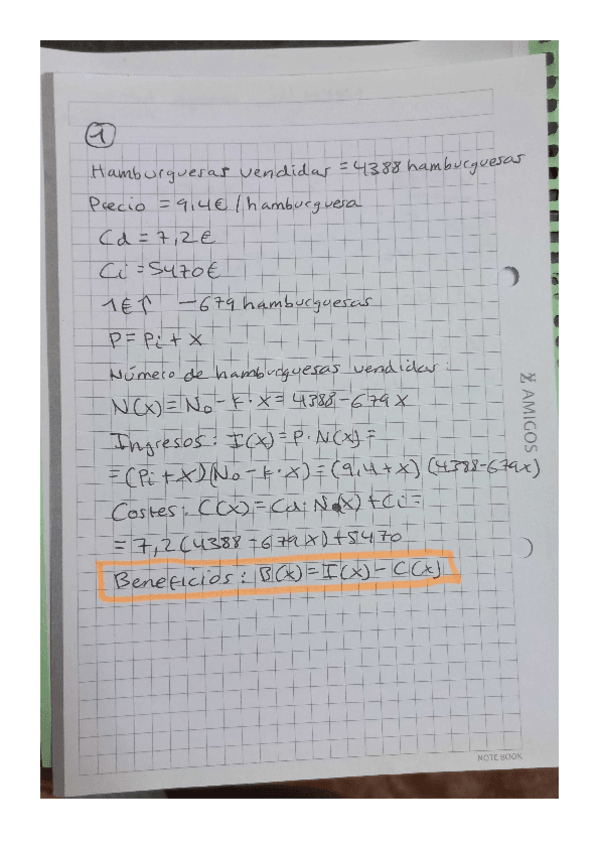 1
Hamburguesas vendidas = 4388 hamburguesas
Precio = 9,4€/hamburguesa
Cd = 7,2€
Ci = 5470€
1€↑ -679 hamburguesas
P = Pi + x
Número de hamburguesas vendidas:
N(x) = N₀ - k·x = 4388 - 679x
Ingresos: I(x) = P·N(x) =
= (Pi + x)(N₀ - k·x) = (9,4 + x)(4388 - 679x)
Costes: C(x) = Cd·N(x) + Ci =
= 7,2(4388 - 679x) + 5470
Beneficios: B(x) = I(x) - C(x)
AMIGOS
NOTE BOOK